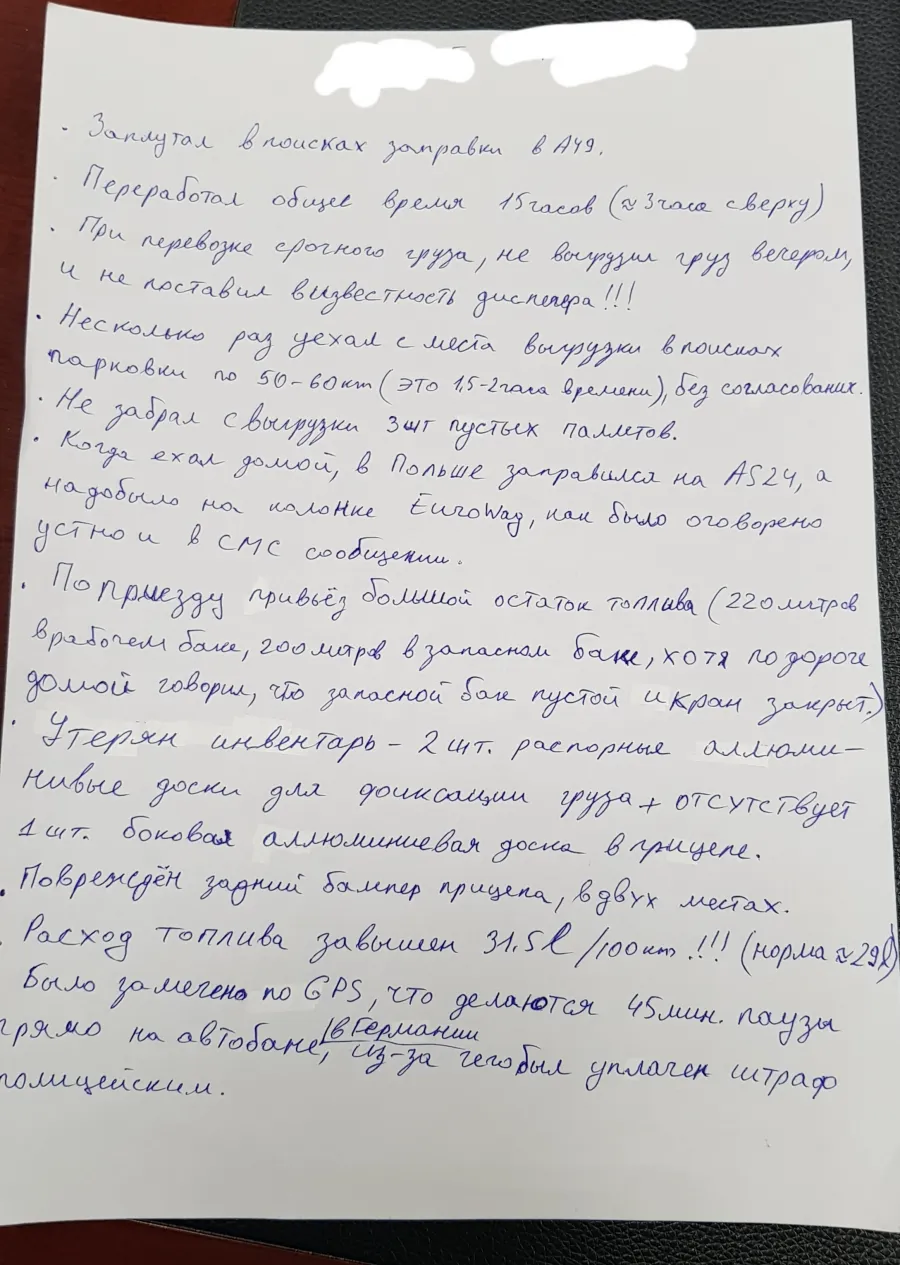 · Заплутал в поисках заправки в А49.
· Переработал общее время 15 часов (≈ 3 часа сверху)
· При перевозке срочного груза, не выгрузил груз вечером,
и не поставил в известность диспечера!!!
· Несколько раз уехал с места выгрузки в поисках
парковки по 50-60 km (это 1,5-2 часа времени), без согласованих.
· Не забрал с выгрузки 3 шт пустых паллетов.
· Когда ехал домой, в Польше заправился на AS24, а
надо было на колонке EuroWag, как было оговорено
устно и в СМС сообщении.
· По приезду привьёз большой остаток топлива (220 литров
в рабочем баке, 200 литров в запасном баке, хотя по дороге
домой говорил, что запасной бак пустой и кран закрыт.)
· Утерян инвентарь - 2 шт. распорные аллюми-
нивые доски для фиксации груза + отсутствует
1 шт. боковая аллюминиевая доска в прицепе.
· Повреждён задний бампер прицепа, в двух местах.
· Расход топлива завышен 31.5l/100km !!! (норма ≈ 29l)
Было замечено по GPS, что делаются 45 мин. паузы
прямо на автобане, в Германии из-за чего был уплачен штраф
полицейским.